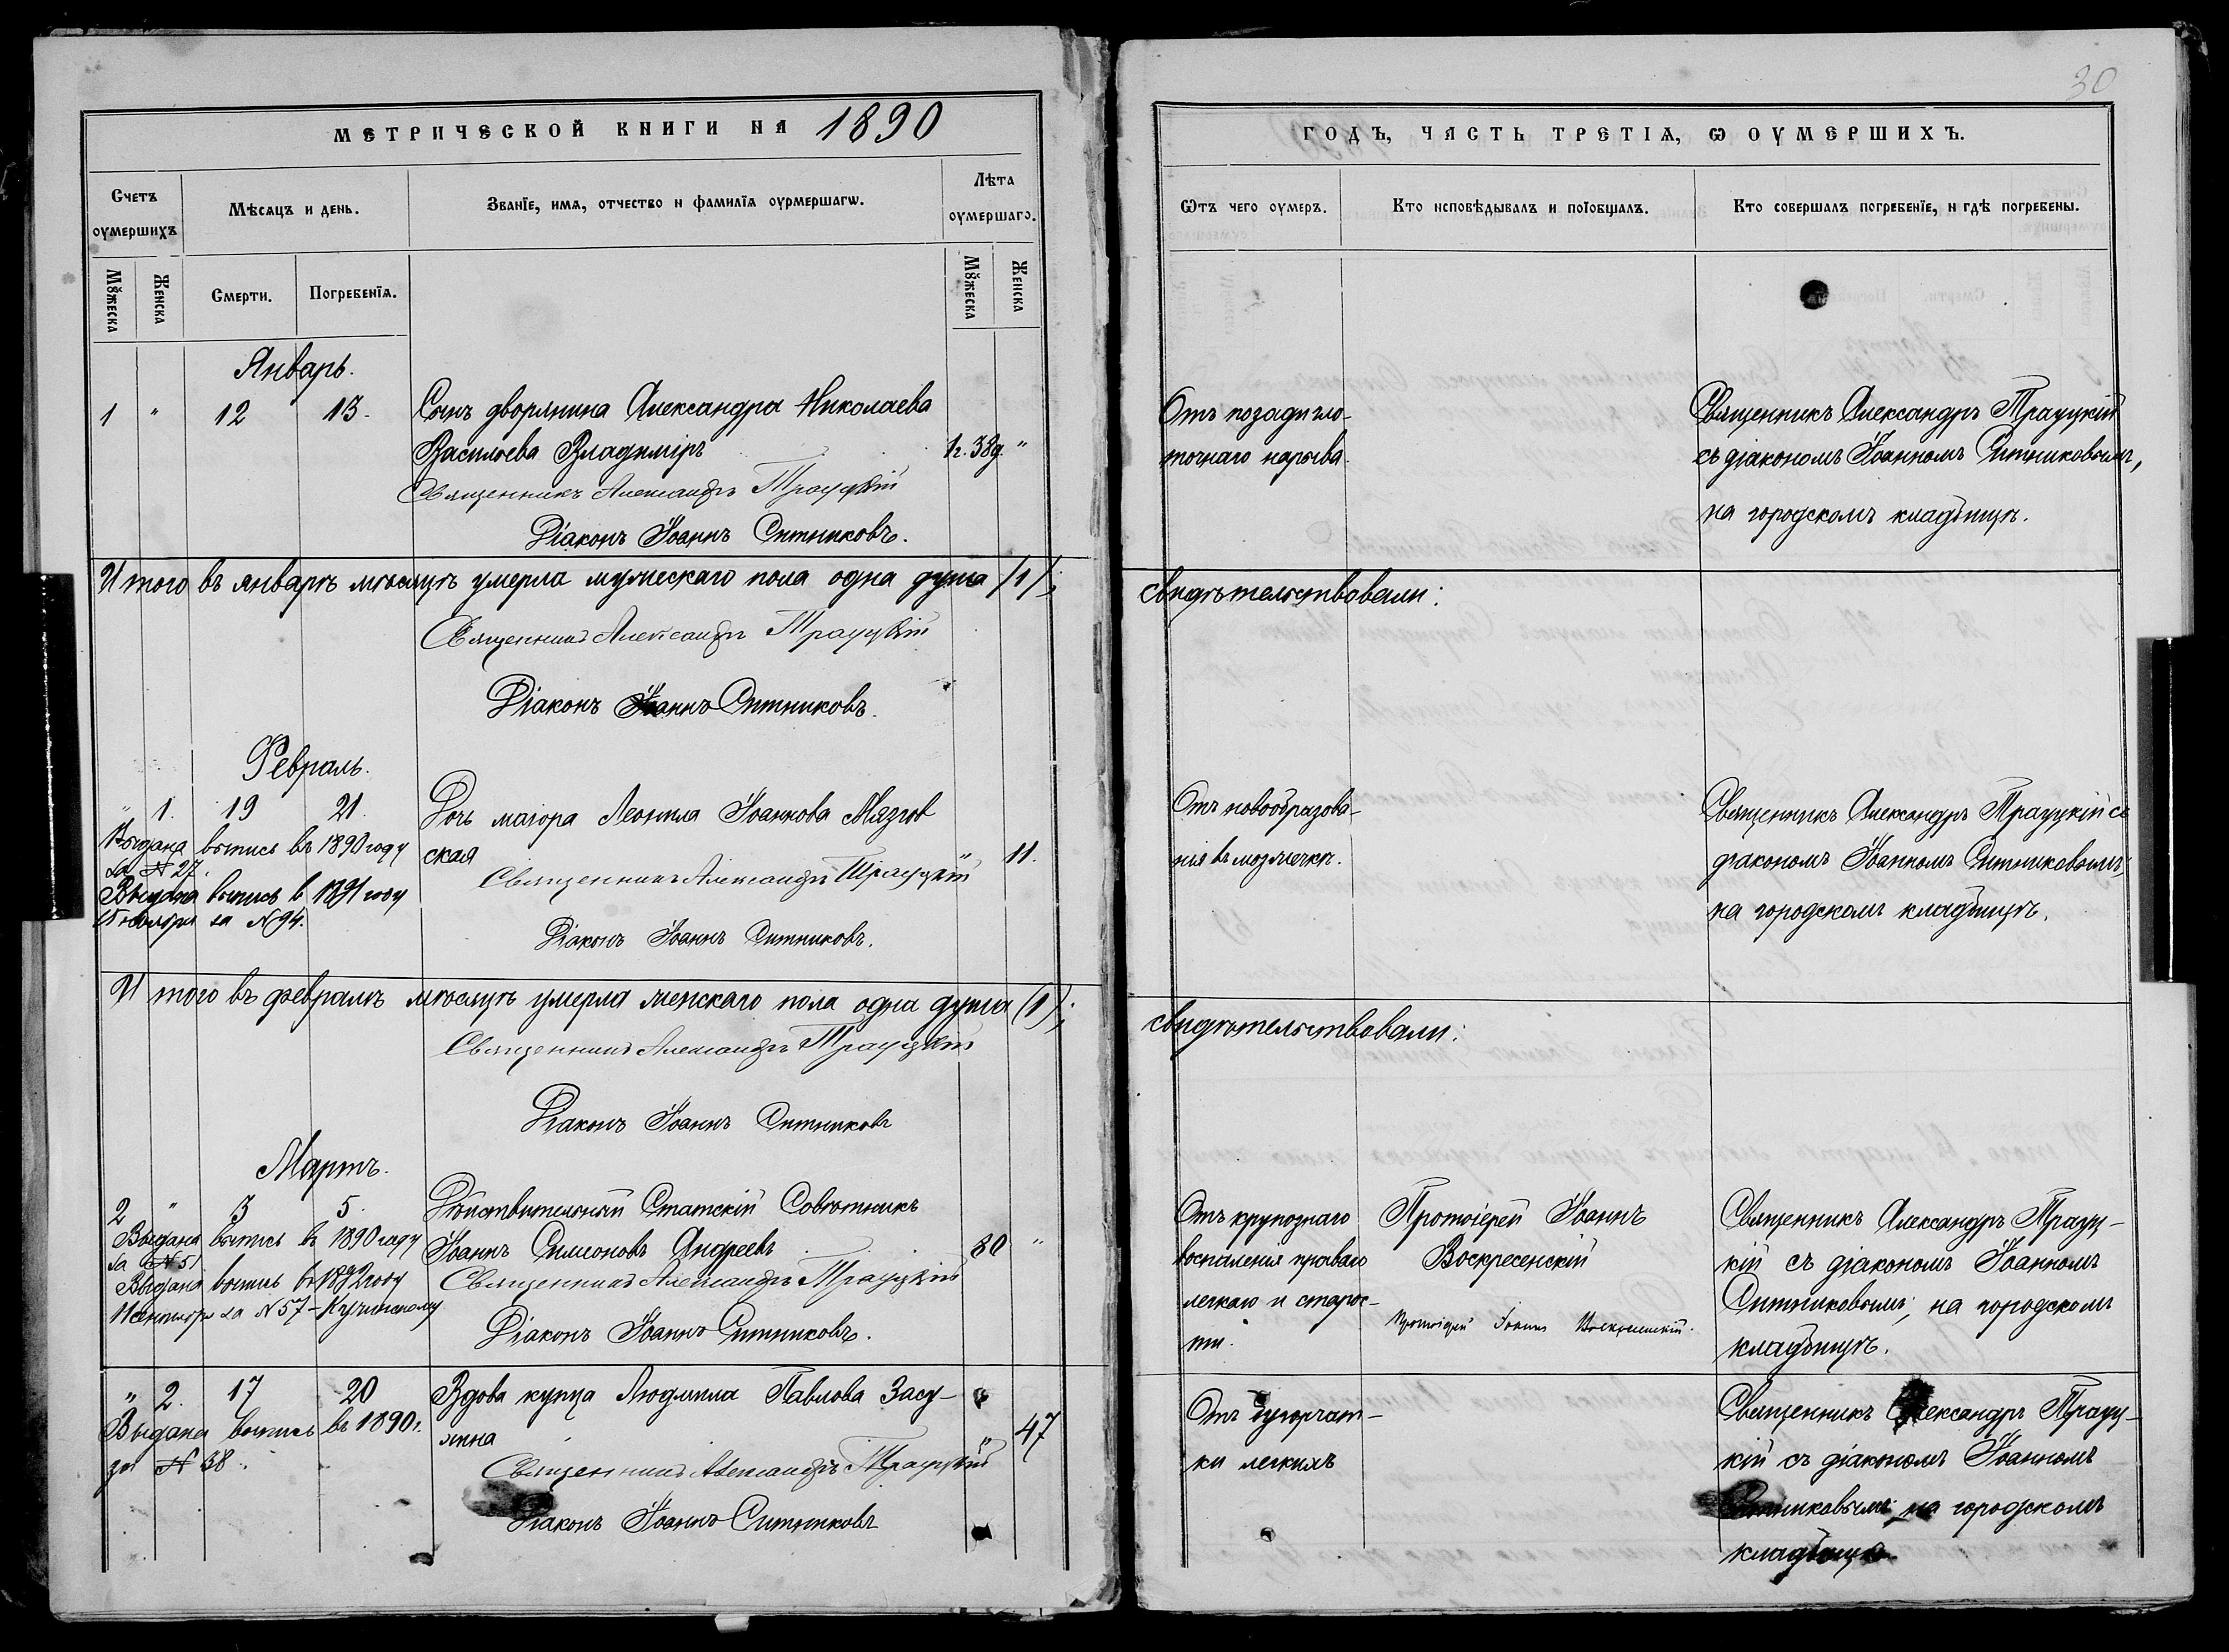 МЕТРИЧЕСКОЙ КНИГИ НА 1890
Счетъ оумершихъ
Мѣсяцъ и день.
Званїе, имя, отчество и фамилїя оурмершагѡ.
Лѣта оумершаго.
Мꙋжеска
Женска
Смерти.
Погребенїя.
Мꙋжеска
Женска
Январь.
1 " 12 13. Сынъ дворянина Александра Николаева
Васильева Владиміръ 1г. 38д. "
Священникъ Александръ Трауцкій
Діаконъ Іоаннъ Ситниковъ.
Итого въ январѣ мѣсяцѣ умерла мужескаго пола одна душа /1/;
Священникъ Александръ Трауцкій
Діаконъ Іоаннъ Ситниковъ.
Февраль.
" 1. 19 21. Дочь маіора Леонила Іоаннова Мязгов
ская " 11.
Выдана выпись въ 1890 году
за № 27.
Выдана выпись в 1891 году
15 ноября за N 94.
Священникъ Александръ Трауцкій
Діаконъ Іоаннъ Ситниковъ.
Итого въ февралѣ мѣсяцѣ умерла женскаго пола одна душа (1);
Священникъ Александръ Трауцкій
Діаконъ Іоаннъ Ситниковъ
Мартъ.
2 " 3 5. Дѣйствительный Статскій Совѣтникъ
Іоаннъ Симеоновъ Андреевъ 80 "
Выдана выпись въ 1890 году
за № 51
Выдана выпись в 1892 году
11 сентября за N 57 - Кучинскому
Священникъ Александръ Трауцкій
Діаконъ Іоаннъ Ситниковъ.
" 2. 17 20 Вдова купца Людмила Павлова Засу-
хина " 47
Выдана выпись въ 1890 г.
за № 38.
Священникъ Александръ Трауцкій
Діаконъ Іоаннъ Ситниковъ
30
ГОДЪ, ЧАСТЬ ТРЕТІЯ, Ѡ ОУМЕРШИХЪ.
Ѿтъ чего оумеръ.
Кто исповѣдывалъ и поїобщалъ.
Кто совершалъ погребенїе, и гдѣ погребены.
Отъ позадигло-
точнаго нарыва.
Священникъ Александръ Трауцкій
съ діакономъ Іоанномъ Ситниковымъ,
на городскомъ кладбищѣ.
свидѣтельствовали:
Отъ новообразова-
нія въ мозжечкѣ.
Священникъ Александръ Трауцкій съ
діакономъ Іоанномъ Ситниковымъ,
на городскомъ кладбищѣ.
свидѣтельствовали:
Отъ крупознаго
воспаленія праваго
легкаго и старос-
ти.
Протоіерей Іоаннъ
Воскресенскій
Протоіерей Іоаннъ Воскресенскій.
Священникъ Александръ Трауц-
кій съ діакономъ Іоанномъ
Ситниковымъ, на городскомъ
кладбищѣ.
Отъ бугорчат-
ки легкихъ
Священникъ Александръ Трауц-
кій съ діакономъ Іоанномъ
Ситниковымъ на городскомъ
кладбищѣ.